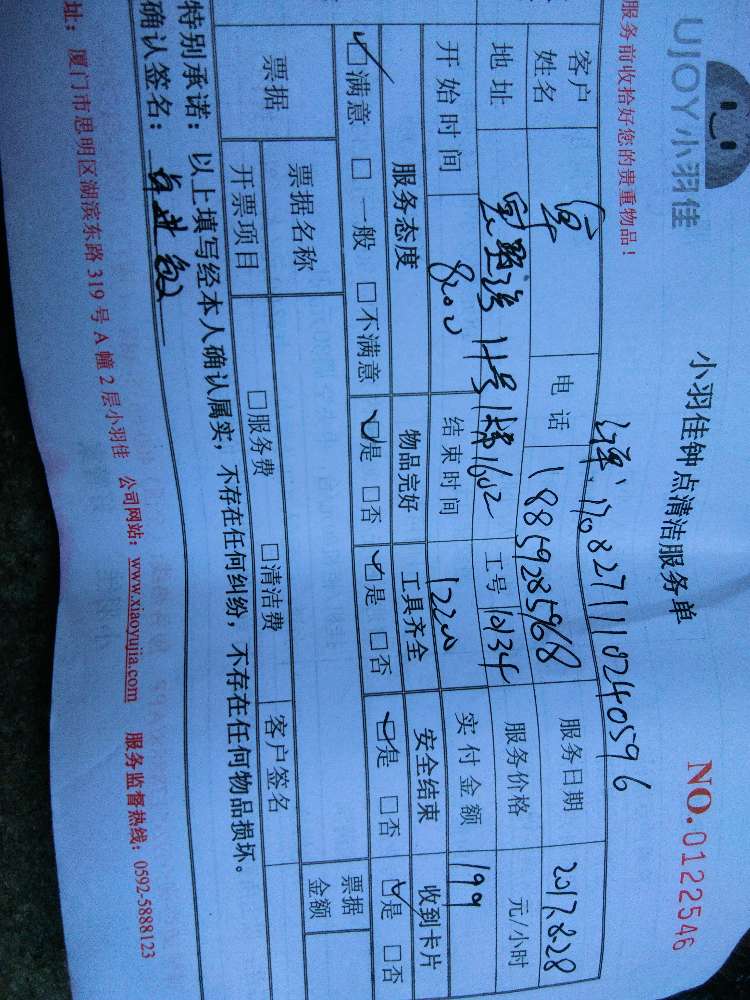 UJOY小羽佳
小羽佳钟点清洁服务单
NO.0122546
服务前收拾好您的贵重物品！
170827111024059 6
客户姓名 电话 18859285968 服务日期 2017.8.28
地址 11号1楼1602 工号 10134 服务价格 元/小时
开始时间 8:00 结束时间 1200 实付金额 199
服务态度 物品完好 工具齐全 安全结束 收到卡片
☑满意 □一般 □不满意 ☑是 □否 ☑是 □否 ☑是 □否 ☑是 □否
票据 票据名称 客户签名 票据金额
开票项目 □服务费 □清洁费
特别承诺：以上填写经本人确认属实，不存在任何纠纷，不存在任何物品损坏。
确认签名：
址：厦门市思明区湖滨东路319号A幢2层小羽佳 公司网站：www.xiaoyujia.com 服务监督热线：0592-5888123